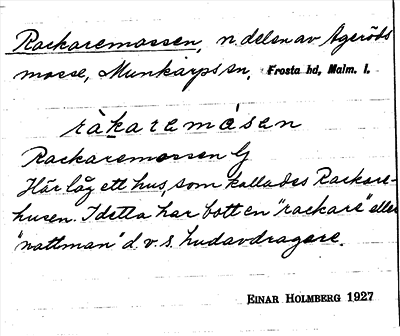 Rackaremossen, n. delen av Ageröds
mosse, Munkarps sn, Frosta hd, Malm. l.
ràkaremåsen
Rackaremossen G
Här låg ett hus, som kallades Rackare-
husen. I detta har bott en "rackare" eller
"nattman" d.v.s. hudavdragare.
EINAR HOLMBERG 1927